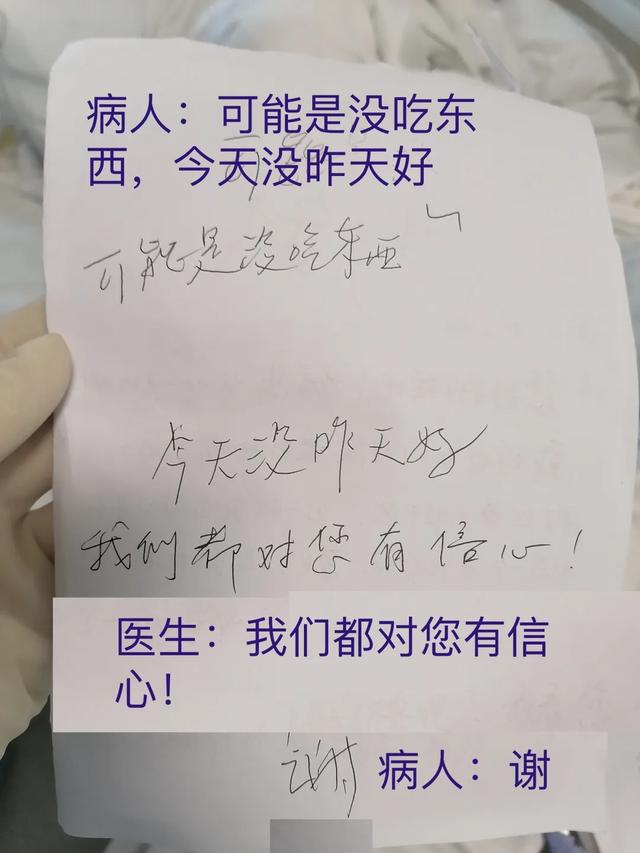 病人：可能是没吃东
西，今天没昨天好
可能是没吃东西
今天没昨天好
我们都对您有信心！
医生：我们都对您有信
心！
谢
病人：谢